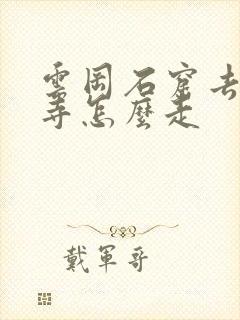 雲岡石窟去
寺怎麼走
戴軍哥